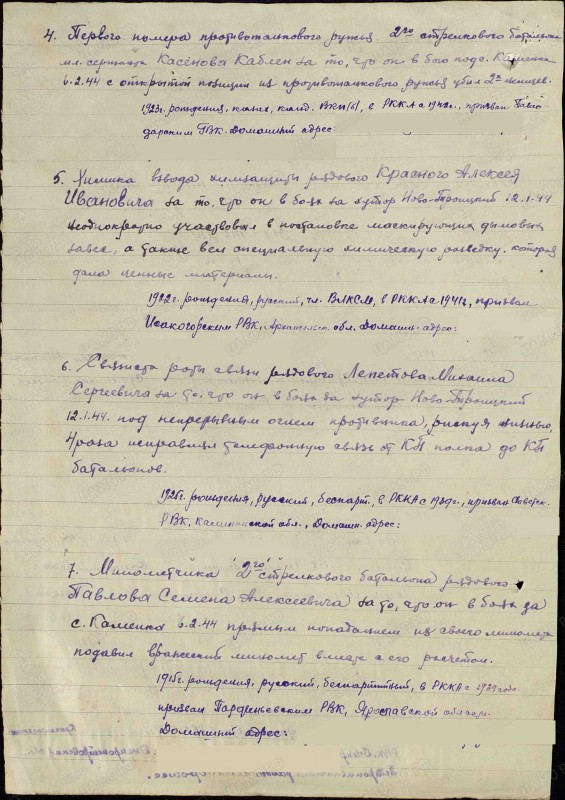 4. Первого номера противотанкового ружья 2го стрелкового батальона
мл. сержанта Касенова Каблен за то, что он в бою под с. Каменка
6.2.44 с открытой позиции из противотанкового ружья убил 2х немцев.
1923г. рождения, казах, канд. ВКП(б), в РККА с 1942г., призван Павло
дарским ГВК. Домашний адрес
5. Химика взвода химзащиты рядового Красного Алексея
Ивановича за то, что он в боях за хутор Ново-Троицкий 12.1.44
неоднократно участвовал в постановке маскирующих дымовых
завес, а также вел специальную химическую разведку, которая
дала ценные материалы.
1922г. рождения, русский, чл. ВЛКСМ, в РККА с 1941г, призван
Исакогорским РВК, Архангельск. обл. Домашн. адрес:
6. Связиста роты связи рядового Лепетова Михаила
Сергеевича за то, что он в боях за хутор Ново-Троицкий
12.1.44. под непрерывным огнем противника, рискуя жизнью,
4 раза исправлял телефонную связь от КП полка до КП
батальонов.
рождения, русский, беспарт., в РККА с 1939г., призван Советск.
РВК. Калининской обл., Домашн. адрес:
7. Минометчика 2го стрелкового батальона рядового
Павлова Семена Алексеевича за то, что он в боях за
с. Каменка 6.2.44 прямым попаданием из своего миномета
подавил вражеский миномет вместе с его расчетом.
рождения, русский, беспартийный, в РККА с
призван РВК, Ярославской области.
Домашний адрес: